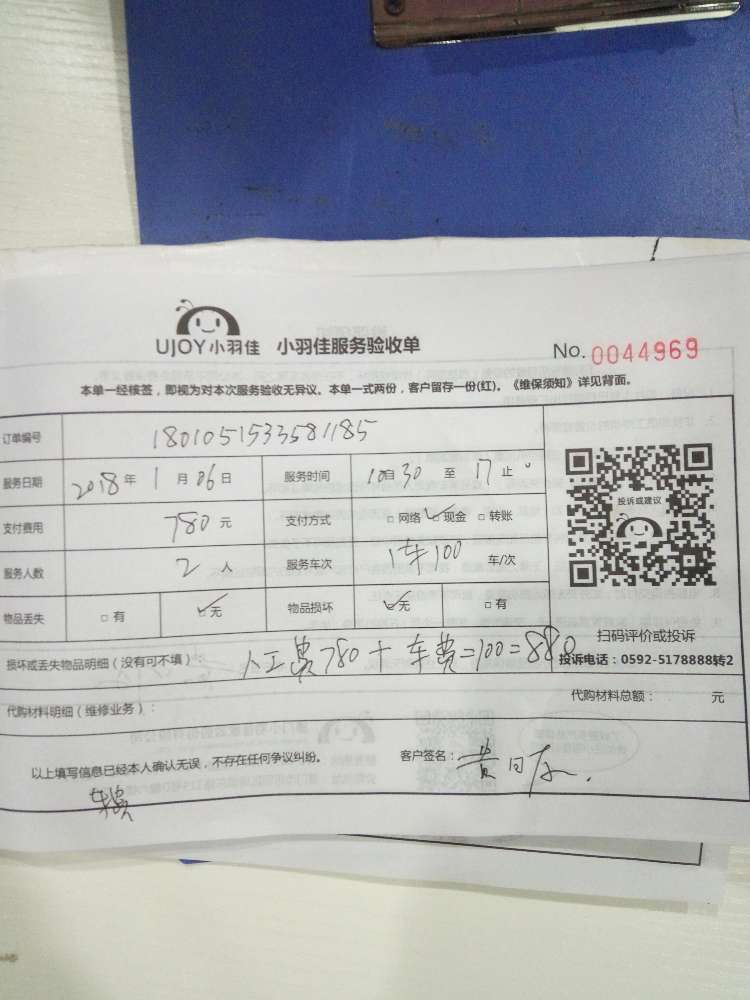 UJOY小羽佳 小羽佳服务验收单 No. 0044969
本单一经核签，即视为对本次服务验收无异议。本单一式两份，客户留存一份(红)。《维保须知》详见背面。
订单编号 1801051533581185
服务日期 2018年 1月06日 服务时间 10自30至17止。
支付费用 780元 支付方式 □网络 ☑现金 □转账
服务人数 2人 服务车次 1车100 车/次
物品丢失 □有 ☑无 物品损坏 ☑无 □有
投诉或建议
扫码评价或投诉
投诉电话：0592-5178888转2
损坏或丢失物品明细（没有可不填）： 人工费780+车费=100=880
代购材料明细（维修业务）： 代购材料总额： 元
以上填写信息已经本人确认无误，不存在任何争议纠纷。 客户签名：